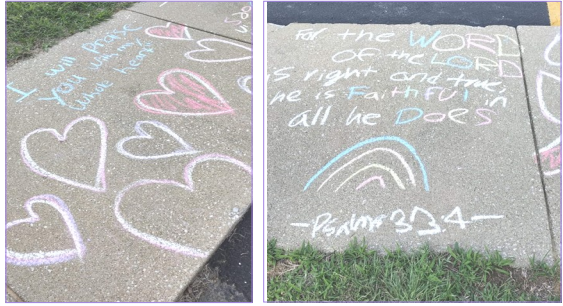 I will Praise
You with my
whole heart
For the WORD
OF the LORD
is right and true,
he is FaithFul in
all he Does
-Psalms 33:4-